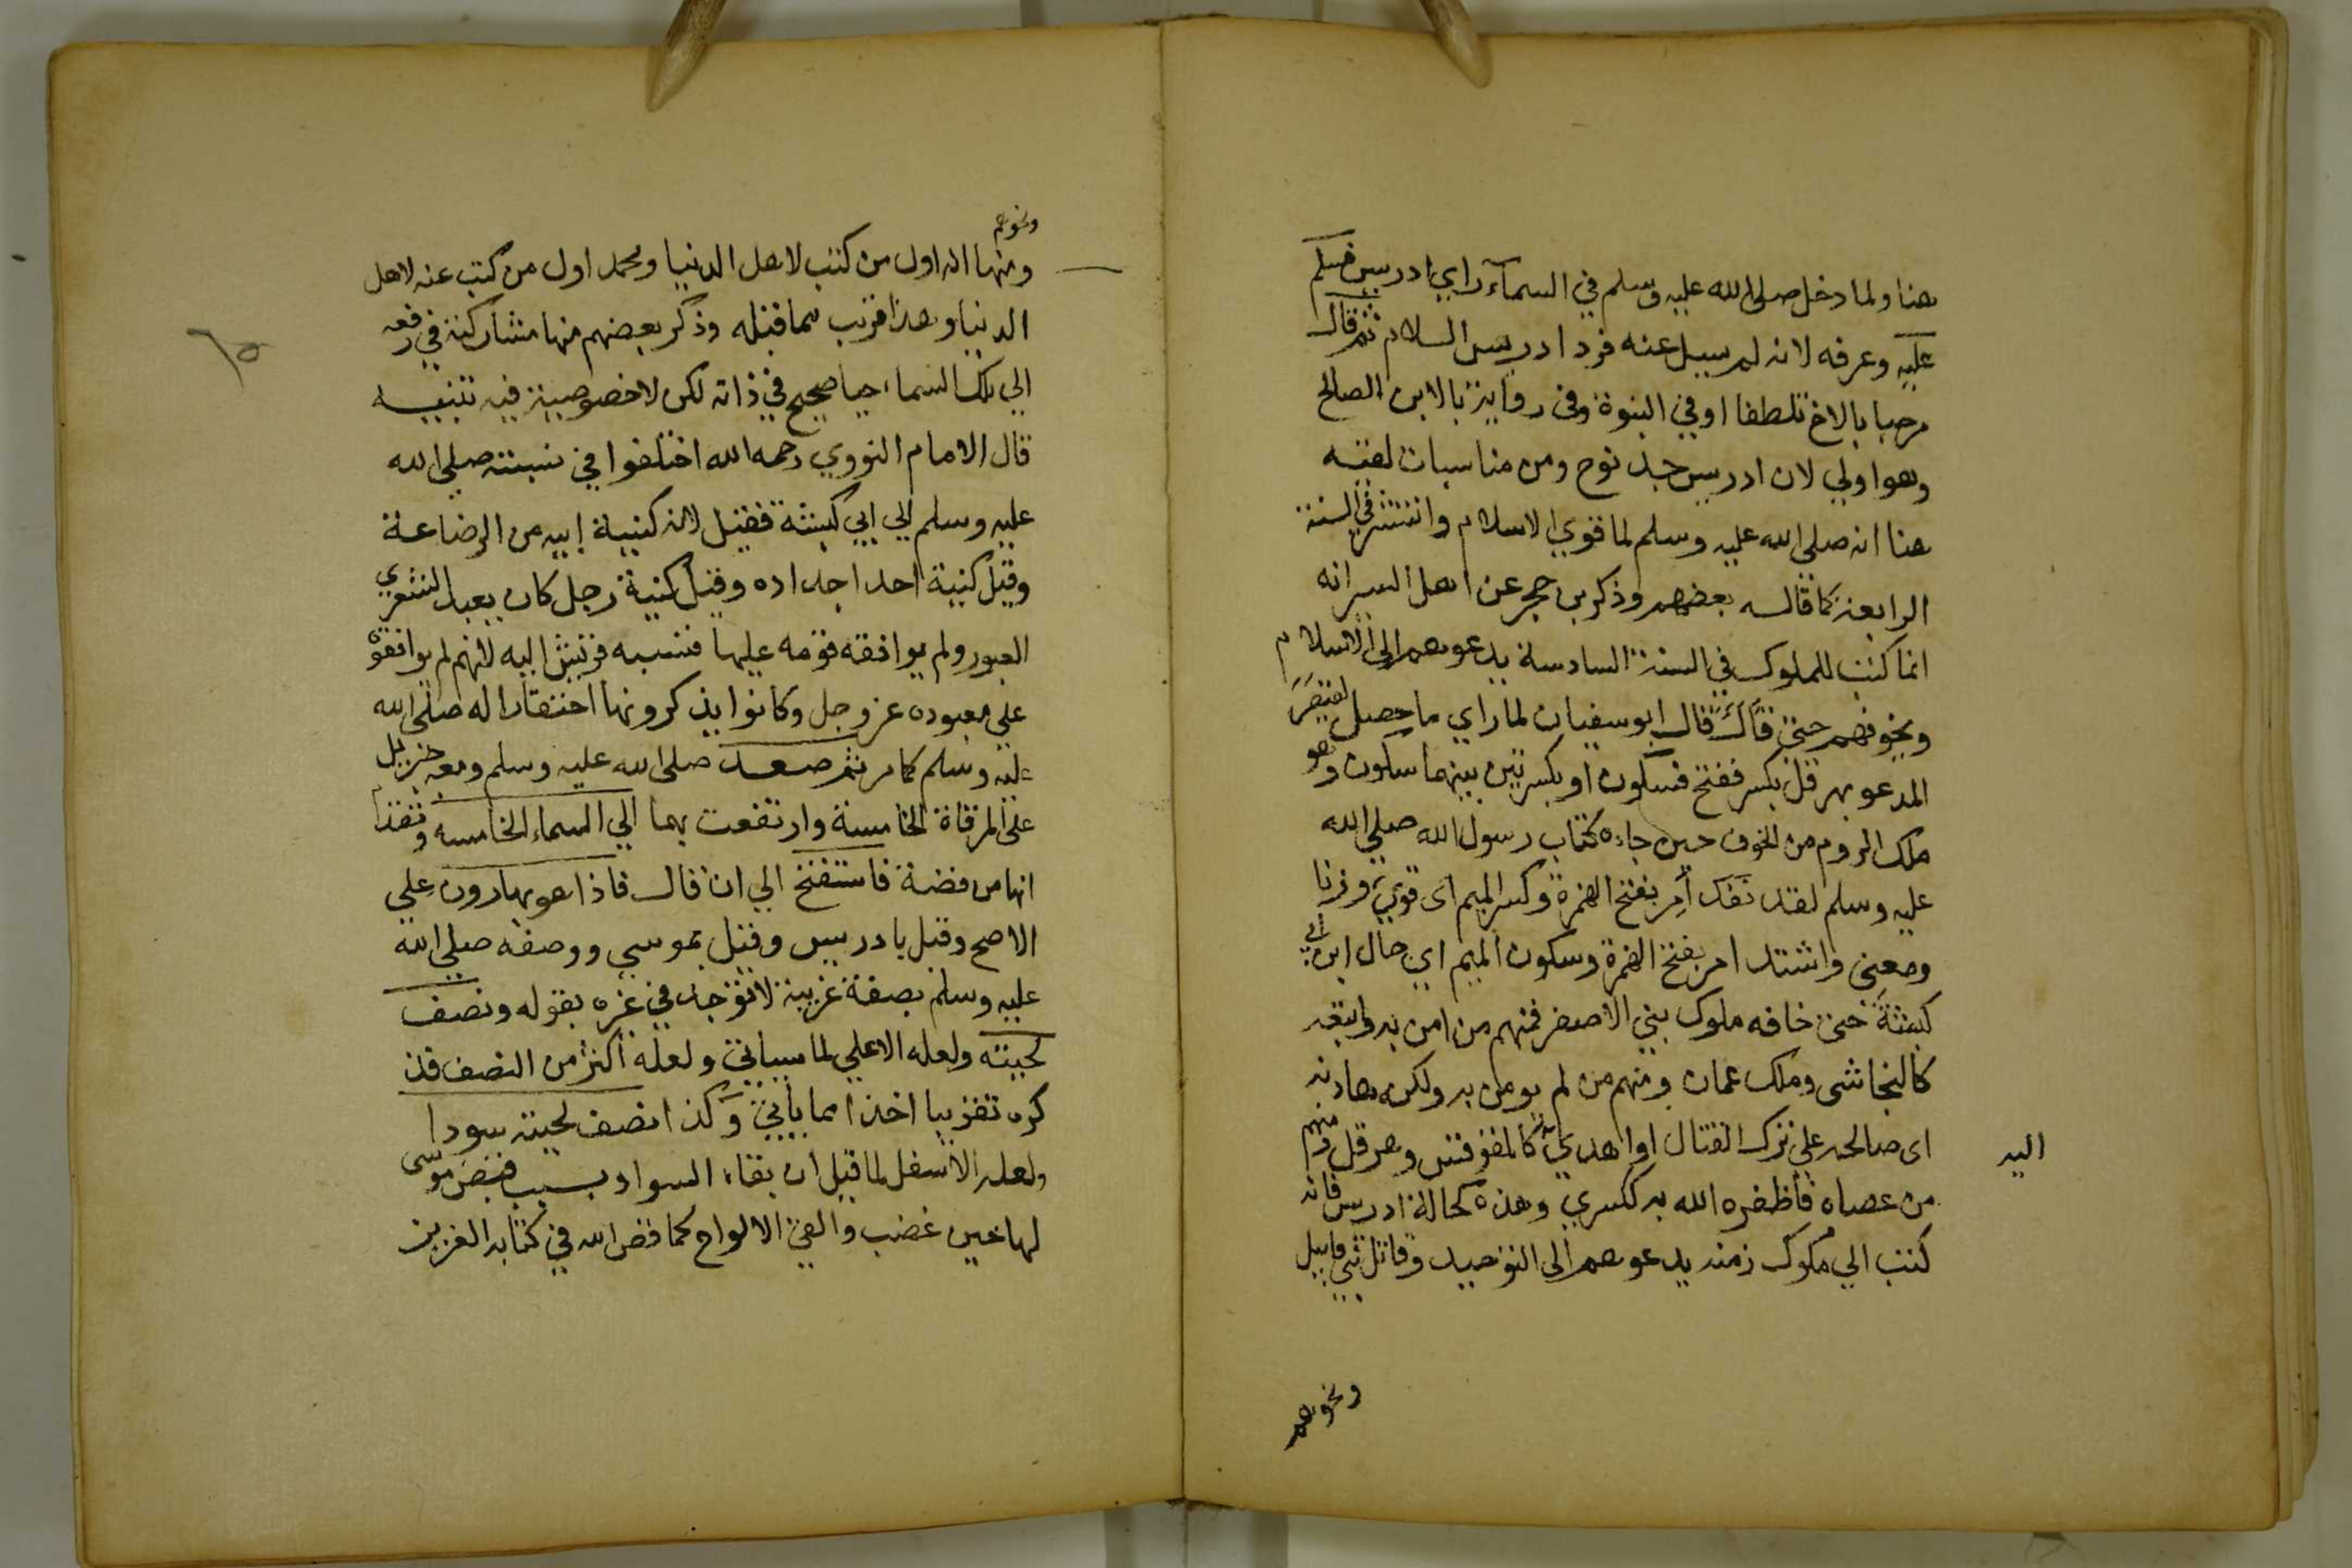 هنا ولما دخل صلى الله عليه وسلم في السماء راي ادريس فسلم
عليه وعرفه لانه لم يسيل عنه فرد ادريس السلام ثم قال
مرحبا بالاخ تلطفا او في النبوة وفي رواية بالابن الصالح
وهو اولي لان ادريس جد نوح ومن مناسبات لقيه
هنا انه صلى الله عليه وسلم لما قوي الاسلام وانتشر في السنة
الرابعة كما قاله بعضهم وذكر بن حجر عن اهل السير انه
انما كتب للملوك في السنة السادسة يدعوهم الى الاسلام
ويخوفهم حتى قال قال ابوسفيان لما راي ما حصل لقيصر
المدعو بهرقل بكسر ففتح فسكون او بكسرتين بينهما سكون وهو
ملك الروم من الخوف حين جاءه كتاب رسول الله صلي الله
عليه وسلم لقد أمر بفتح الهمزة وكسر الميم اى قوي وزنا
ومعنى واشتد امر بفتح الهمزة وسكون الميم اي حال ابن ابي
كبشة حتى خافه ملوك بني الاصفر فمنهم من امن به واتبعه
كالنجاشى وملك عمان ومنهم من لم يومن به ولكن هادنه
اى صالحه على ترك القتال او اهدي اليه كالمقوقس وهرقل ومنهم
من عصاه فأظفره الله به ككسري وهذه كحالة ادريس فانه
كتب الي ملوك زمنه يدعوهم الى التوحيد وقاتل بني قابيل
ونحوهم
ونحوهم
ومنها انه اول من كتب لاهل الدنيا ومحمد اول من كتب عنه لاهل
الدنيا وهذا قريب مما قبله وذكر بعضهم منها مشاركته في رفعه
الي تلك السماء حيا صحيح في ذاته لكن لا خصوصية فيه تنبيه
قال الامام النووي رحمه الله اختلفوا في نسبته صلي الله
عليه وسلم الي ابي كبشة فقيل لانه كنية ابيه من الرضاعة
وقيل كنية احد اجداده وقيل كنية رجل كان يعبد الشعري
العبور ولم يوافقه قومه عليها فنسبه قريش اليه لانهم لم يوافقوه
علي معبوده عز وجل وكانوا يذكرونها احتقارا له صلى الله
عليه وسلم كما مر ثم صعد صلى الله عليه وسلم ومعه جبريل
على المرقاة الخامسة وارتفعت بهما الي السماء الخامسه وتقدم
انها من فضة فاستفتح الي ان قال فاذا هو بهارون علي
الاصح وقيل بادريس وقيل بموسي ووصفه صلي الله
عليه وسلم بصفة غريبة لا توجد في غيره بقوله ونصف
لحيته ولعله الاعلي لما سياتي ولعله اكثر من النصف فذ
كره تقريبا اخذا مما يأتي وكذا نصف لحيته سودا
ولعله الاسفل لما قيل ان بقاء السواد بسبب قبض موسى
لها حين غضب والقي الالواح كما قص الله في كتابه العزيز
٦٥